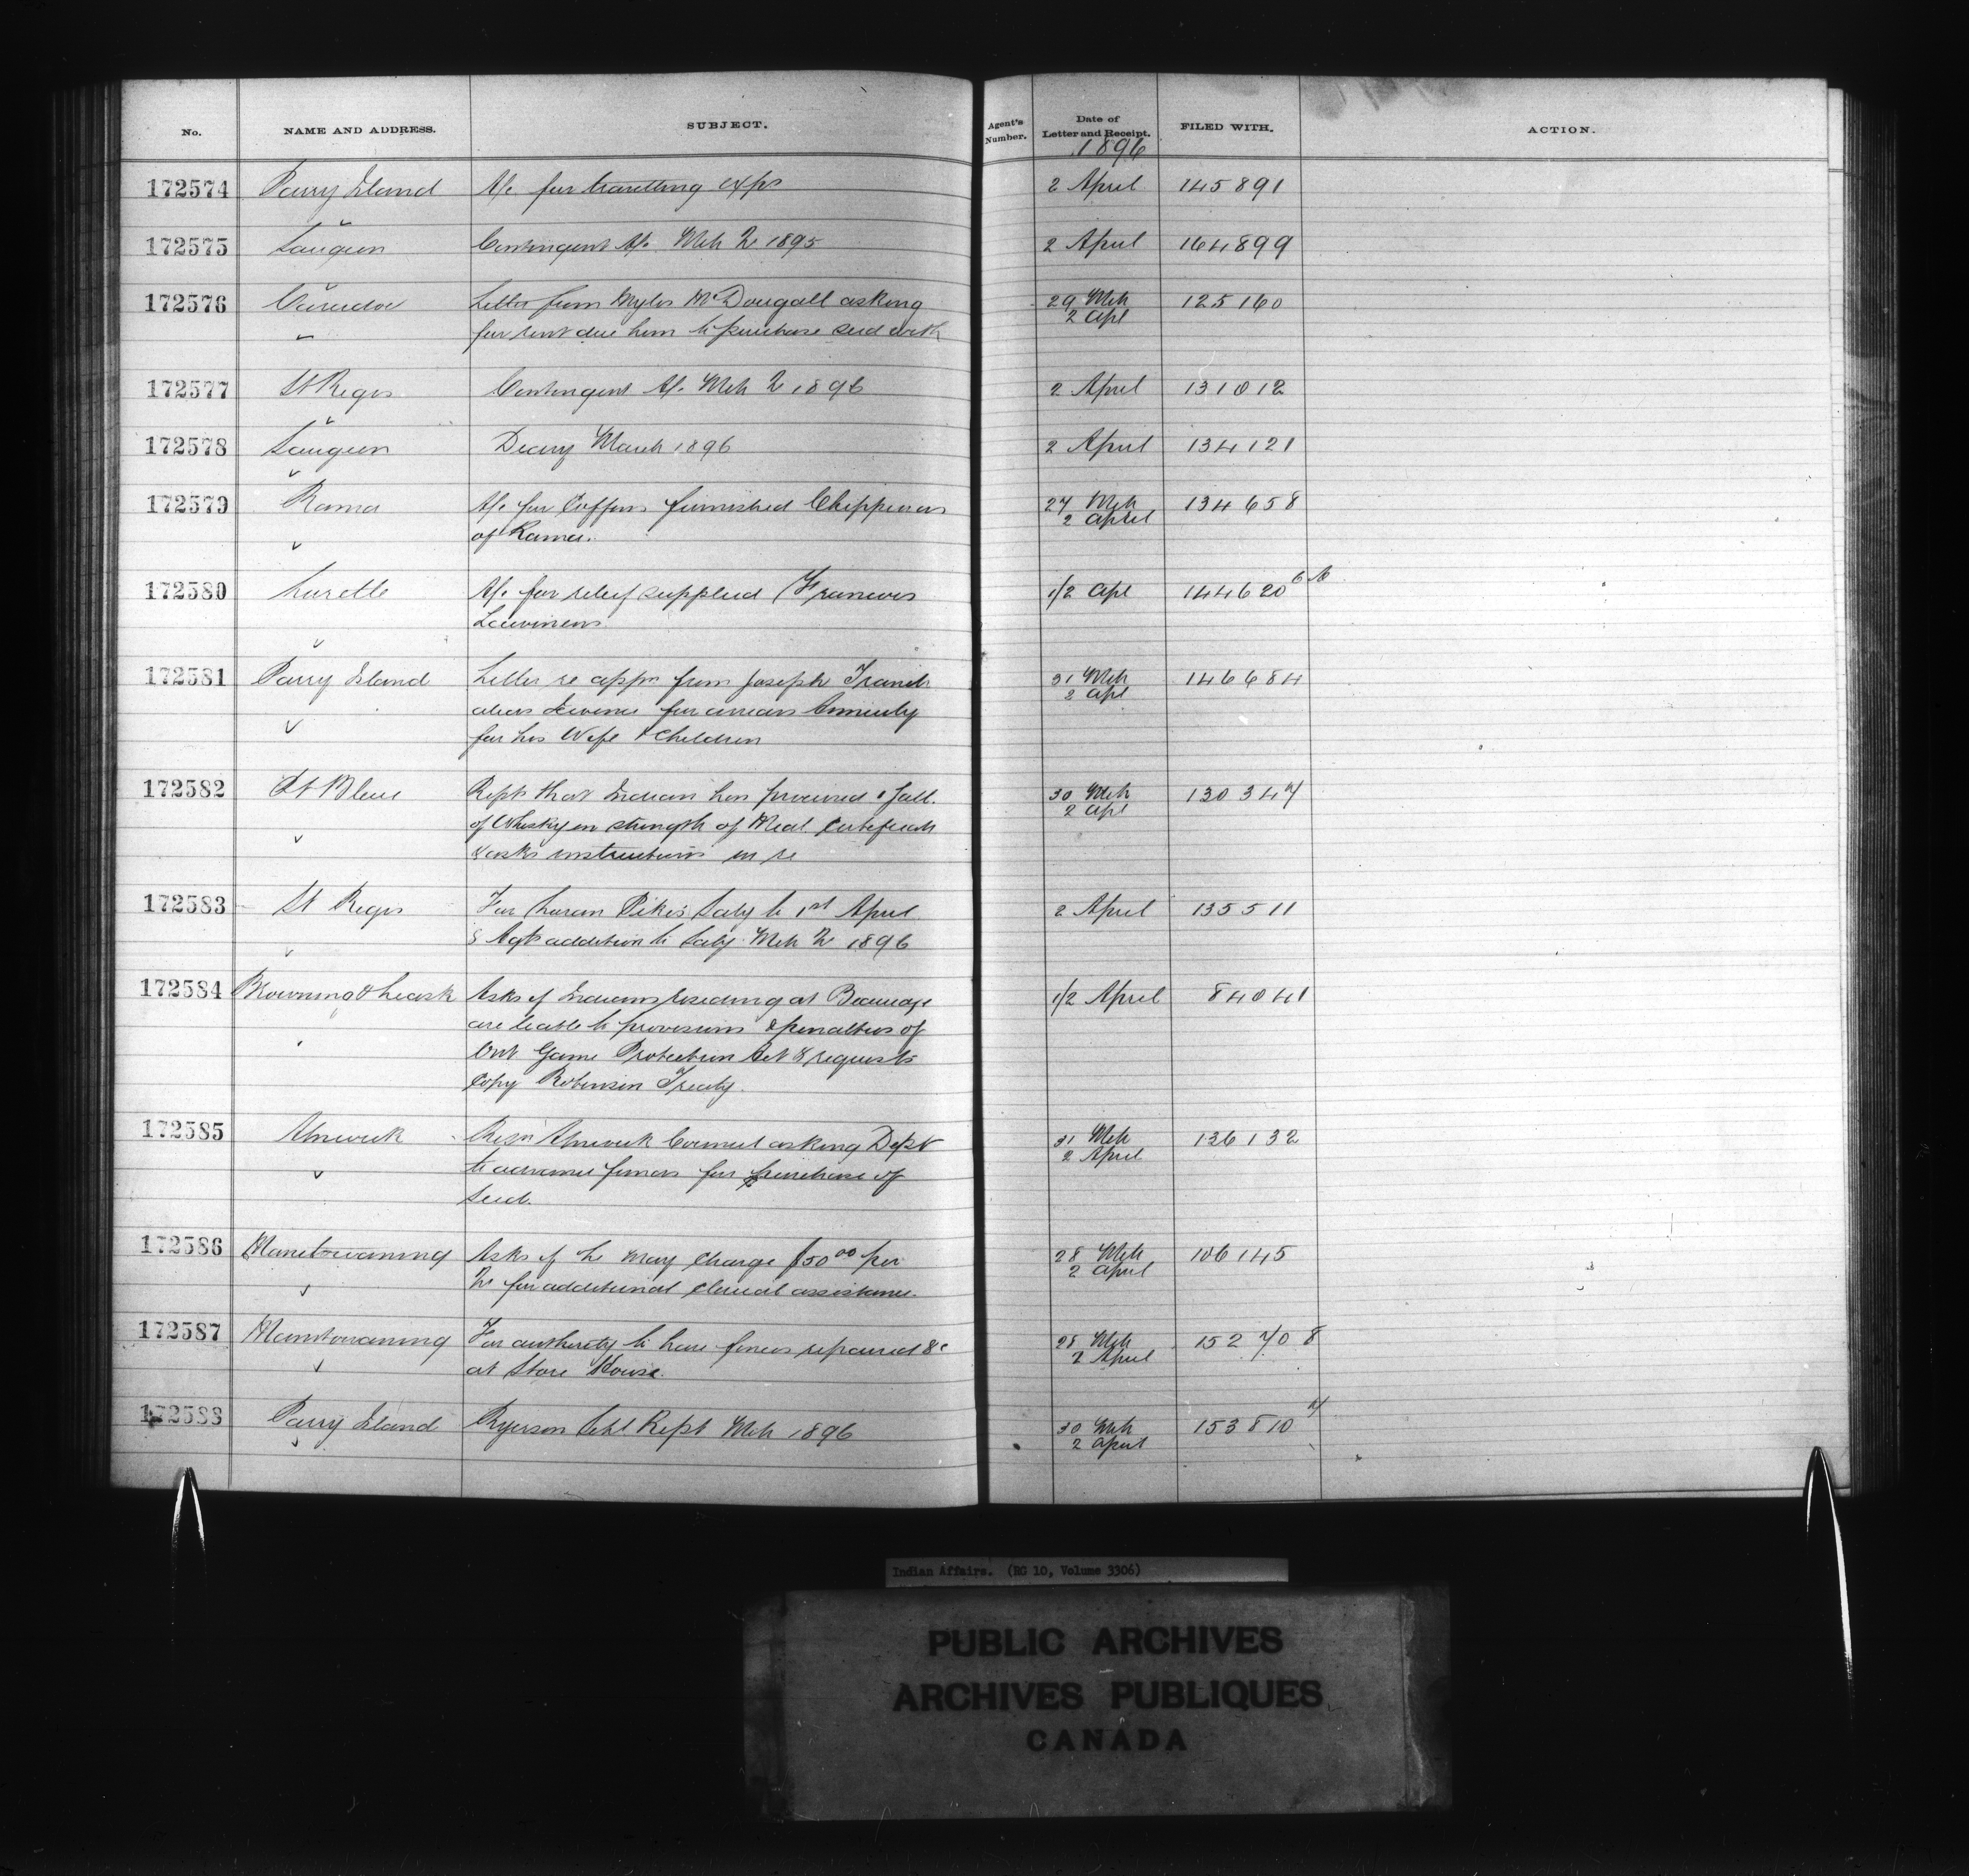 No. NAME AND ADDRESS. SUBJECT. Agent's Number. Date of Letter and Receipt. FILED WITH. ACTION.
1896
172574 Parry Island A/c for travelling exps 2 April 145891
172575 Saugeen Contingent A/c Mch 1895 2 April 164899
172576 Caradoc Letter from Myles McDougall asking 29 Mch 125160
for rent due him to purchase seed with 2 Apl
172577 St Regis Contingent A/c Mch 1896 2 April 131012
172578 Saugeen Diary March 1896 2 April 134121
172579 Rama A/c for Coffins furnished Chippewas 27 Mch 134658
of Rama. 2 April
172580 Lorette A/c for relief supplied Francois 1/2 Apl 144620
172581 Parry Island Letter re appn from Joseph 31 Mch 146684
alias for arrears Annuity 2 Apl
for his Wife & Children
172582 Pt Bleue Rept that Indian has procured 1 Gall. 30 Mch 130347
of Whisky on strength of Med. Certificate 2 Apl
& asks instructions in re
172583 St Regis For Pike's Saly to 1st April 2 April 135511
& Agts addition to Saly Mch 1896
172584 Browning & Leask Asks if Indians residing at Beaucage 1/2 April 84041
are liable to provisions & penalties of
Ont Game Protection Act & requests
Copy Robinson Treaty.
172585 Alnwick Resn Alnwick Council asking Dept 31 Mch 136132
to advance funds for purchase of 2 April
Seed.
172586 Manitowaning Asks if he may charge $50 00 per 28 Mch 106145
for additional Clerical assistance. 2 April
172587 Manitowaning For authority to have fences repaired &c 28 Mch 152708
at Store House. 2 April
172588 Parry Island Ryerson Schl Rept Mch 1896 30 Mch 153810
2 April
Indian Affairs. (RG 10, Volume 3306)
PUBLIC ARCHIVES
ARCHIVES PUBLIQUES
CANADA